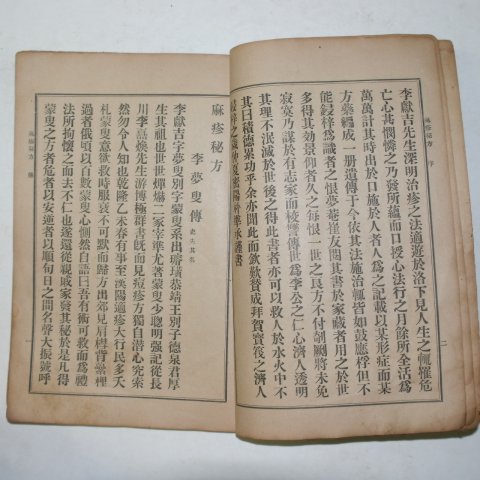 李獻吉先生深明治疹之法適遊於洛下見人生之輒罹危
亡心甚憫憐之乃發所蘊而口授心法行之月餘所全活爲
萬萬計其時出於口施於人者人爲之記載以某形症而某
方藥編成一册遺傳于今依其法施治輒皆如鼓應桴但不
能鋟梓爲識者之恨夢菴崔友閱其書於家藏者用之於世
多得其効景仰者久之每恨一世之良方不付剞劂將未免
寂寞乃謀於有志家而梭鬠傳世爲李公之仁心濟人透明
其理不泯滅於世後之得此書者亦可以救人於水火中不
其曰積德累功乎余亦聞此而歎贊成拜賀寶筏之濟人
麻疹秘方
李夢叟傳
李獻吉字夢叟別字蒙叟系出璿璜恭靖王別子德泉君厚
生其祖也世世燀爀二家宰準尤著蒙叟少聰明强記從長
川李嘉煥先生游博極群書既而見痘疹方獨自潛心究索
然勿令人知也乾隆乙未春有事至漢陽適疹大行民多夭
札蒙叟意欲救時服衰不可默而歸方出郊見肩桿背虆裡
過者俄頃以百數蒙叟心惻然自語曰吾有術可救而爲禮
法所拘懷之而去不仁也遂還從親戚家發其秘於是凡得
蒙叟之方者危者以安逆者以順旬日之間名聲大振號呼